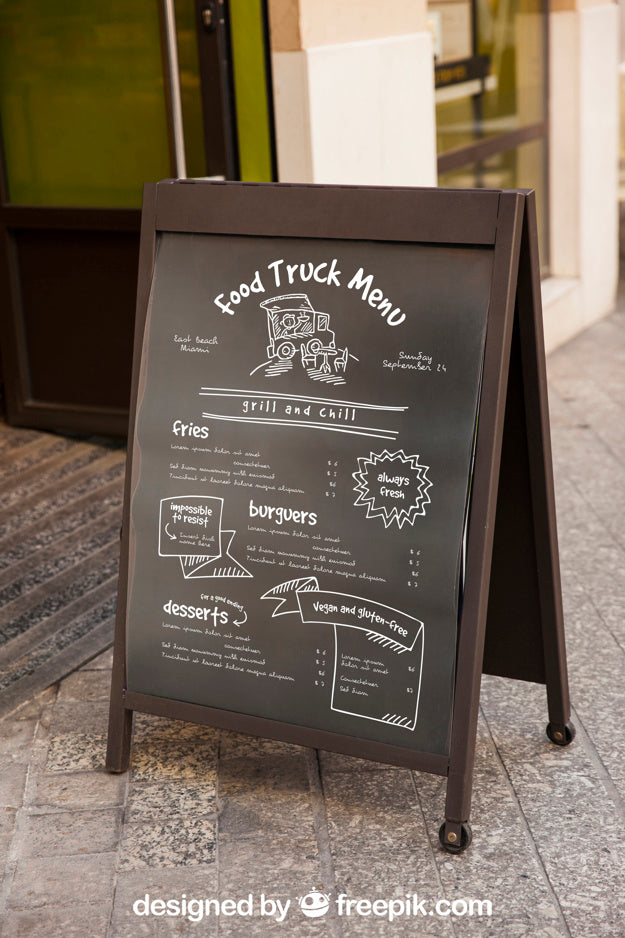 Food Truck Menu
East Beach
Miami
Sunday
September 24
grill and chill
fries
Lorem ipsum dolor sit amet
consectetuer $ 6
Sed diam nonummy nibh euismod $ 5
Tincidunt ut laoreet dolore magna aliquam $6
$ 7
always
fresh
impossible
to resist
Insert dish
name here
burguers
Lorem ipsum dolor sit amet
consectetuer $ 6
Sed diam nonummy nibh euismod $ 5
Tincidunt ut laoreet dolore magna aliquam $6
$ 7
for a good ending
desserts
Lorem ipsum dolor sit amet
consectetuer $ 6
Sed diam nonummy nibh euismod $ 5
Tincidunt ut laoreet dolore magna aliquam $6
$ 7
Vegan and gluten-free
Lorem ipsum
dolor sit amet $6
Consectetuer $7
Sed diam
designed by freepik.com